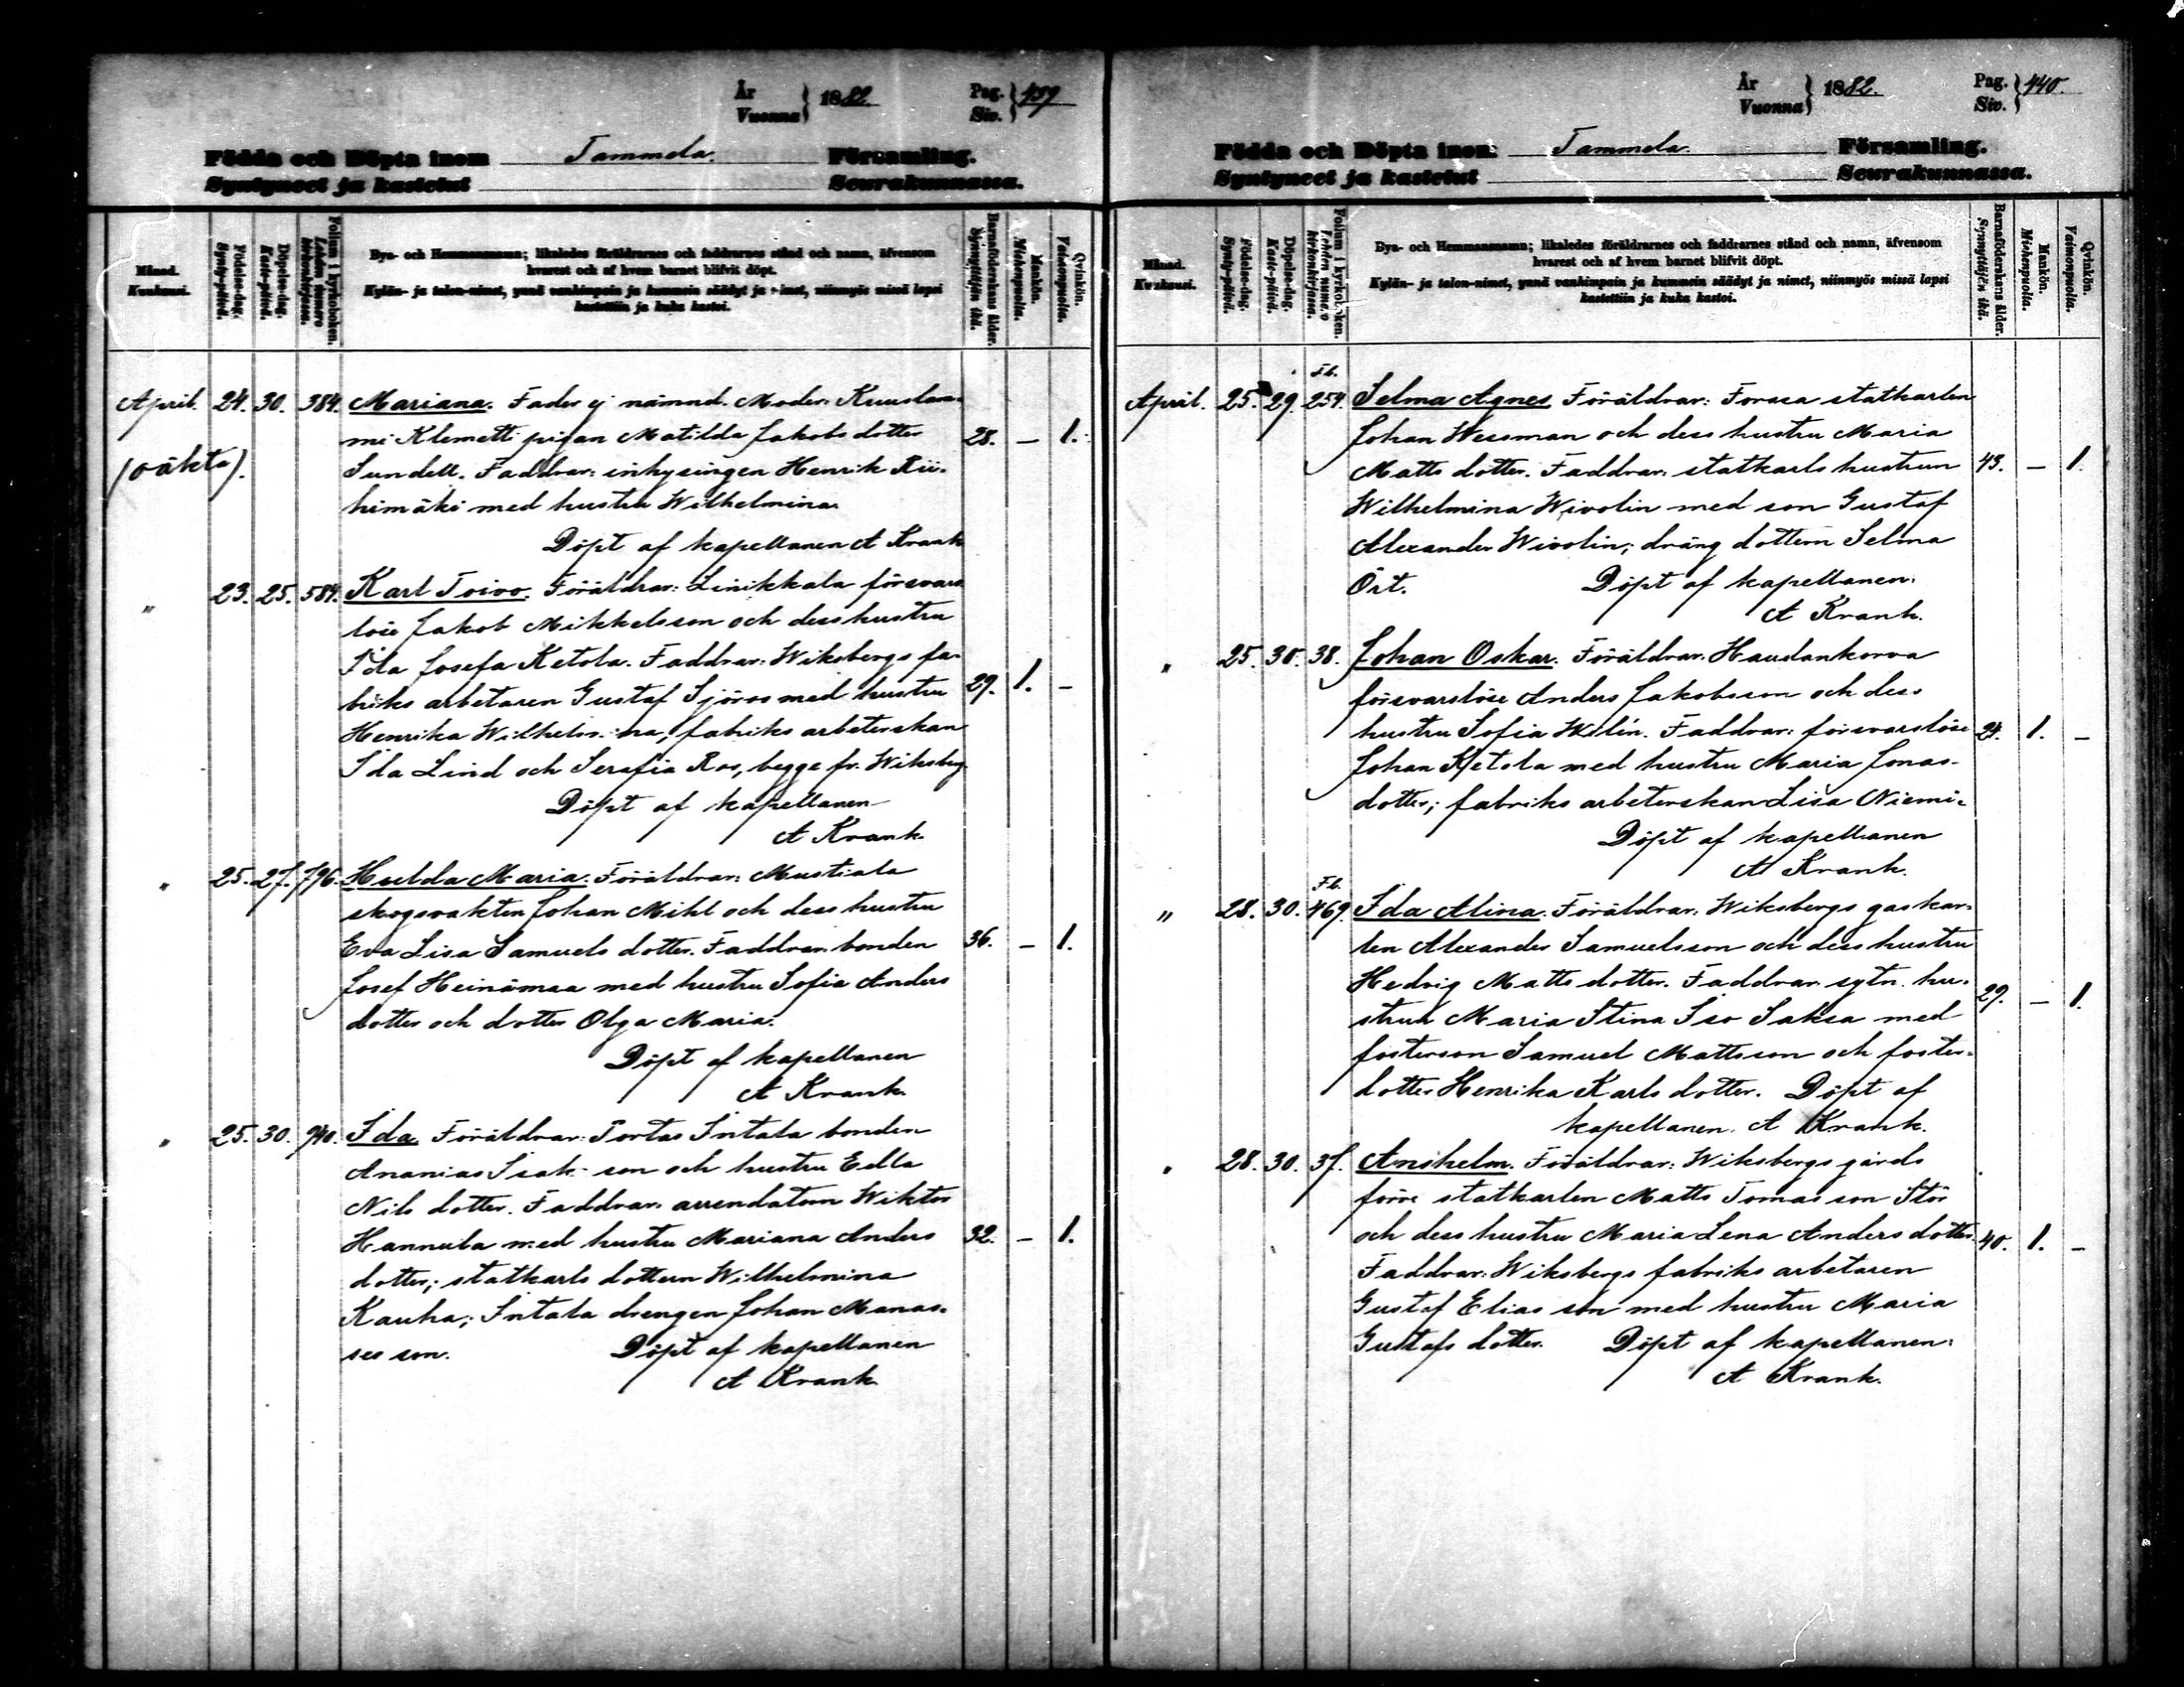 År
Vuonna } 1882. Pag.
Siv. } 439
Födda och Döpta inom Tammela. Församling.
Syntyneet ja kastetut Seurakunnassa.
Månad.
Kuukausi.
Födelse-dag.
Synty-päivä.
Döpelse-dag.
Kaste-päivä.
Folium i kyrkoboken.
Lehden numero kirkonkirjassa.
Bya- och Hemmansnamn; likaledes föräldrarnes och faddrarnes stånd och namn, äfvensom
hvarest och af hvem barnet blifvit döpt.
Kylän- ja talon-nimet, ynnä vanhimpain ja kummein säädyt ja nimet, niinmyös missä lapsi
kastettiin ja kuka kastoi.
Barnaföderskans ålder.
Synnyttäjän ikä.
Mankön.
Miehenpuolia.
Qvinkön.
Vaimonpuolia.
April. 24. 30. 384. Mariana. Fader ej nämnd. Moder: Kuuslam-
mi Klemetti pigan Matilda Jakobs dotter 28. — 1.
(oäkta). Sundell. Faddrar: inhysingen Henrik Rii-
himäki med hustru Wilhelmina
Döpt af kapellanen A Krank
" 23. 25. 584. Karl Toivo. Föräldrar: Linikkala försvars
löse Jakob Mikkelsson och dess hustru
Ida Josefa Ketola. Faddrar: Wiksbergs fa-
briks arbetaren Gustaf Sjöroos med hustru 29. 1. —
Henrika Wilhelmina, fabriks arbeterskan
Ida Lind och Serafia Ros, begge fr. Wiksberg.
Döpt af kapellanen
A Krank.
" 25. 27. 796. Hulda Maria. Föräldrar: Mustiala
skogsvakten Johan Mihl och dess hustru
Eva Lisa Samuels dotter. Faddrar: bonden 36. — 1.
Josef Heinämaa med hustru Sofia Anders
dotter och dotter Olga Maria.
Döpt af kapellanen
A Krank.
" 25. 30. 940. Ida Föräldrar: Portas Intala bonden
Ananias Isak-son och hustru Edla
Nils dotter. Faddrar: arrendatorn Wiktor
Hannula med hustru Mariana Anders 32. — 1.
dotter; statkarls dottern Wilhelmina
Kauha; Intala drengen Johan Manas-
ses son. Döpt af kapellanen
A Krank.
År
Vuonna } 1882. Pag.
Siv. } 440.
Födda och Döpta inom Tammela. Församling.
Syntyneet ja kastetut Seurakunnassa.
Månad.
Kuukausi.
Födelse-dag.
Synty-päivä.
Döpelse-dag.
Kaste-päivä.
Folium i kyrkoboken.
Lehden numero kirkonkirjassa.
Bya- och Hemmansnamn; likaledes föräldrarnes och faddrarnes stånd och namn, äfvensom
hvarest och af hvem barnet blifvit döpt.
Kylän- ja talon-nimet, ynnä vanhimpain ja kummein säädyt ja nimet, niinmyös missä lapsi
kastettiin ja kuka kastoi.
Barnaföderskans ålder.
Synnyttäjän ikä.
Mankön.
Miehenpuolia.
Qvinkön.
Vaimonpuolia.
Fb.
April. 25. 29. 254. Selma Agnes Föräldrar: Forssa statkarlen
Johan Wessman och dess hustru Maria
Matts dotter. Faddrar: statkarls hustrun 43. — 1.
Wilhelmina Wivolin med son Gustaf
Alexander Wivolin; dräng dottern Selma
Öst. Döpt af kapellanen.
A Krank.
" 25. 30. 38. Johan Oskar. Föräldrar: Haudankorva
försvarslöse Anders Jakobsson och dess
hustru Sofia Welin. Faddrar: försvarslöse 24. 1. —
Johan Ketola med hustru Maria Jonas-
dotter; fabriks arbeterskan Lisa Niemi.
Döpt af kapellanen
A Krank.
Fb.
" 28. 30. 469. Ida Alina. Föräldrar: Wiksbergs gaskar-
len Alexander Samuelsson och dess hustru
Hedvig Matts dotter. Faddrar: sytn. hu- 29. — 1.
strun Maria Stina Iso Saksa med
fosterson Samuel Mattsson och foster-
dotter Henrika Karls dotter. Döpt af
kapellanen. A Krank.
" 28. 30. 37. Anshelm. Föräldrar: Wiksbergs gårds
förre statkarlen Matts Tomas son Stör
och dess hustru Maria Lena Anders dotter. 40. 1. —
Faddrar: Wiksbergs fabriks arbetaren
Gustaf Elias son med hustru Maria
Gustafs dotter. Döpt af kapellanen.
A Krank.